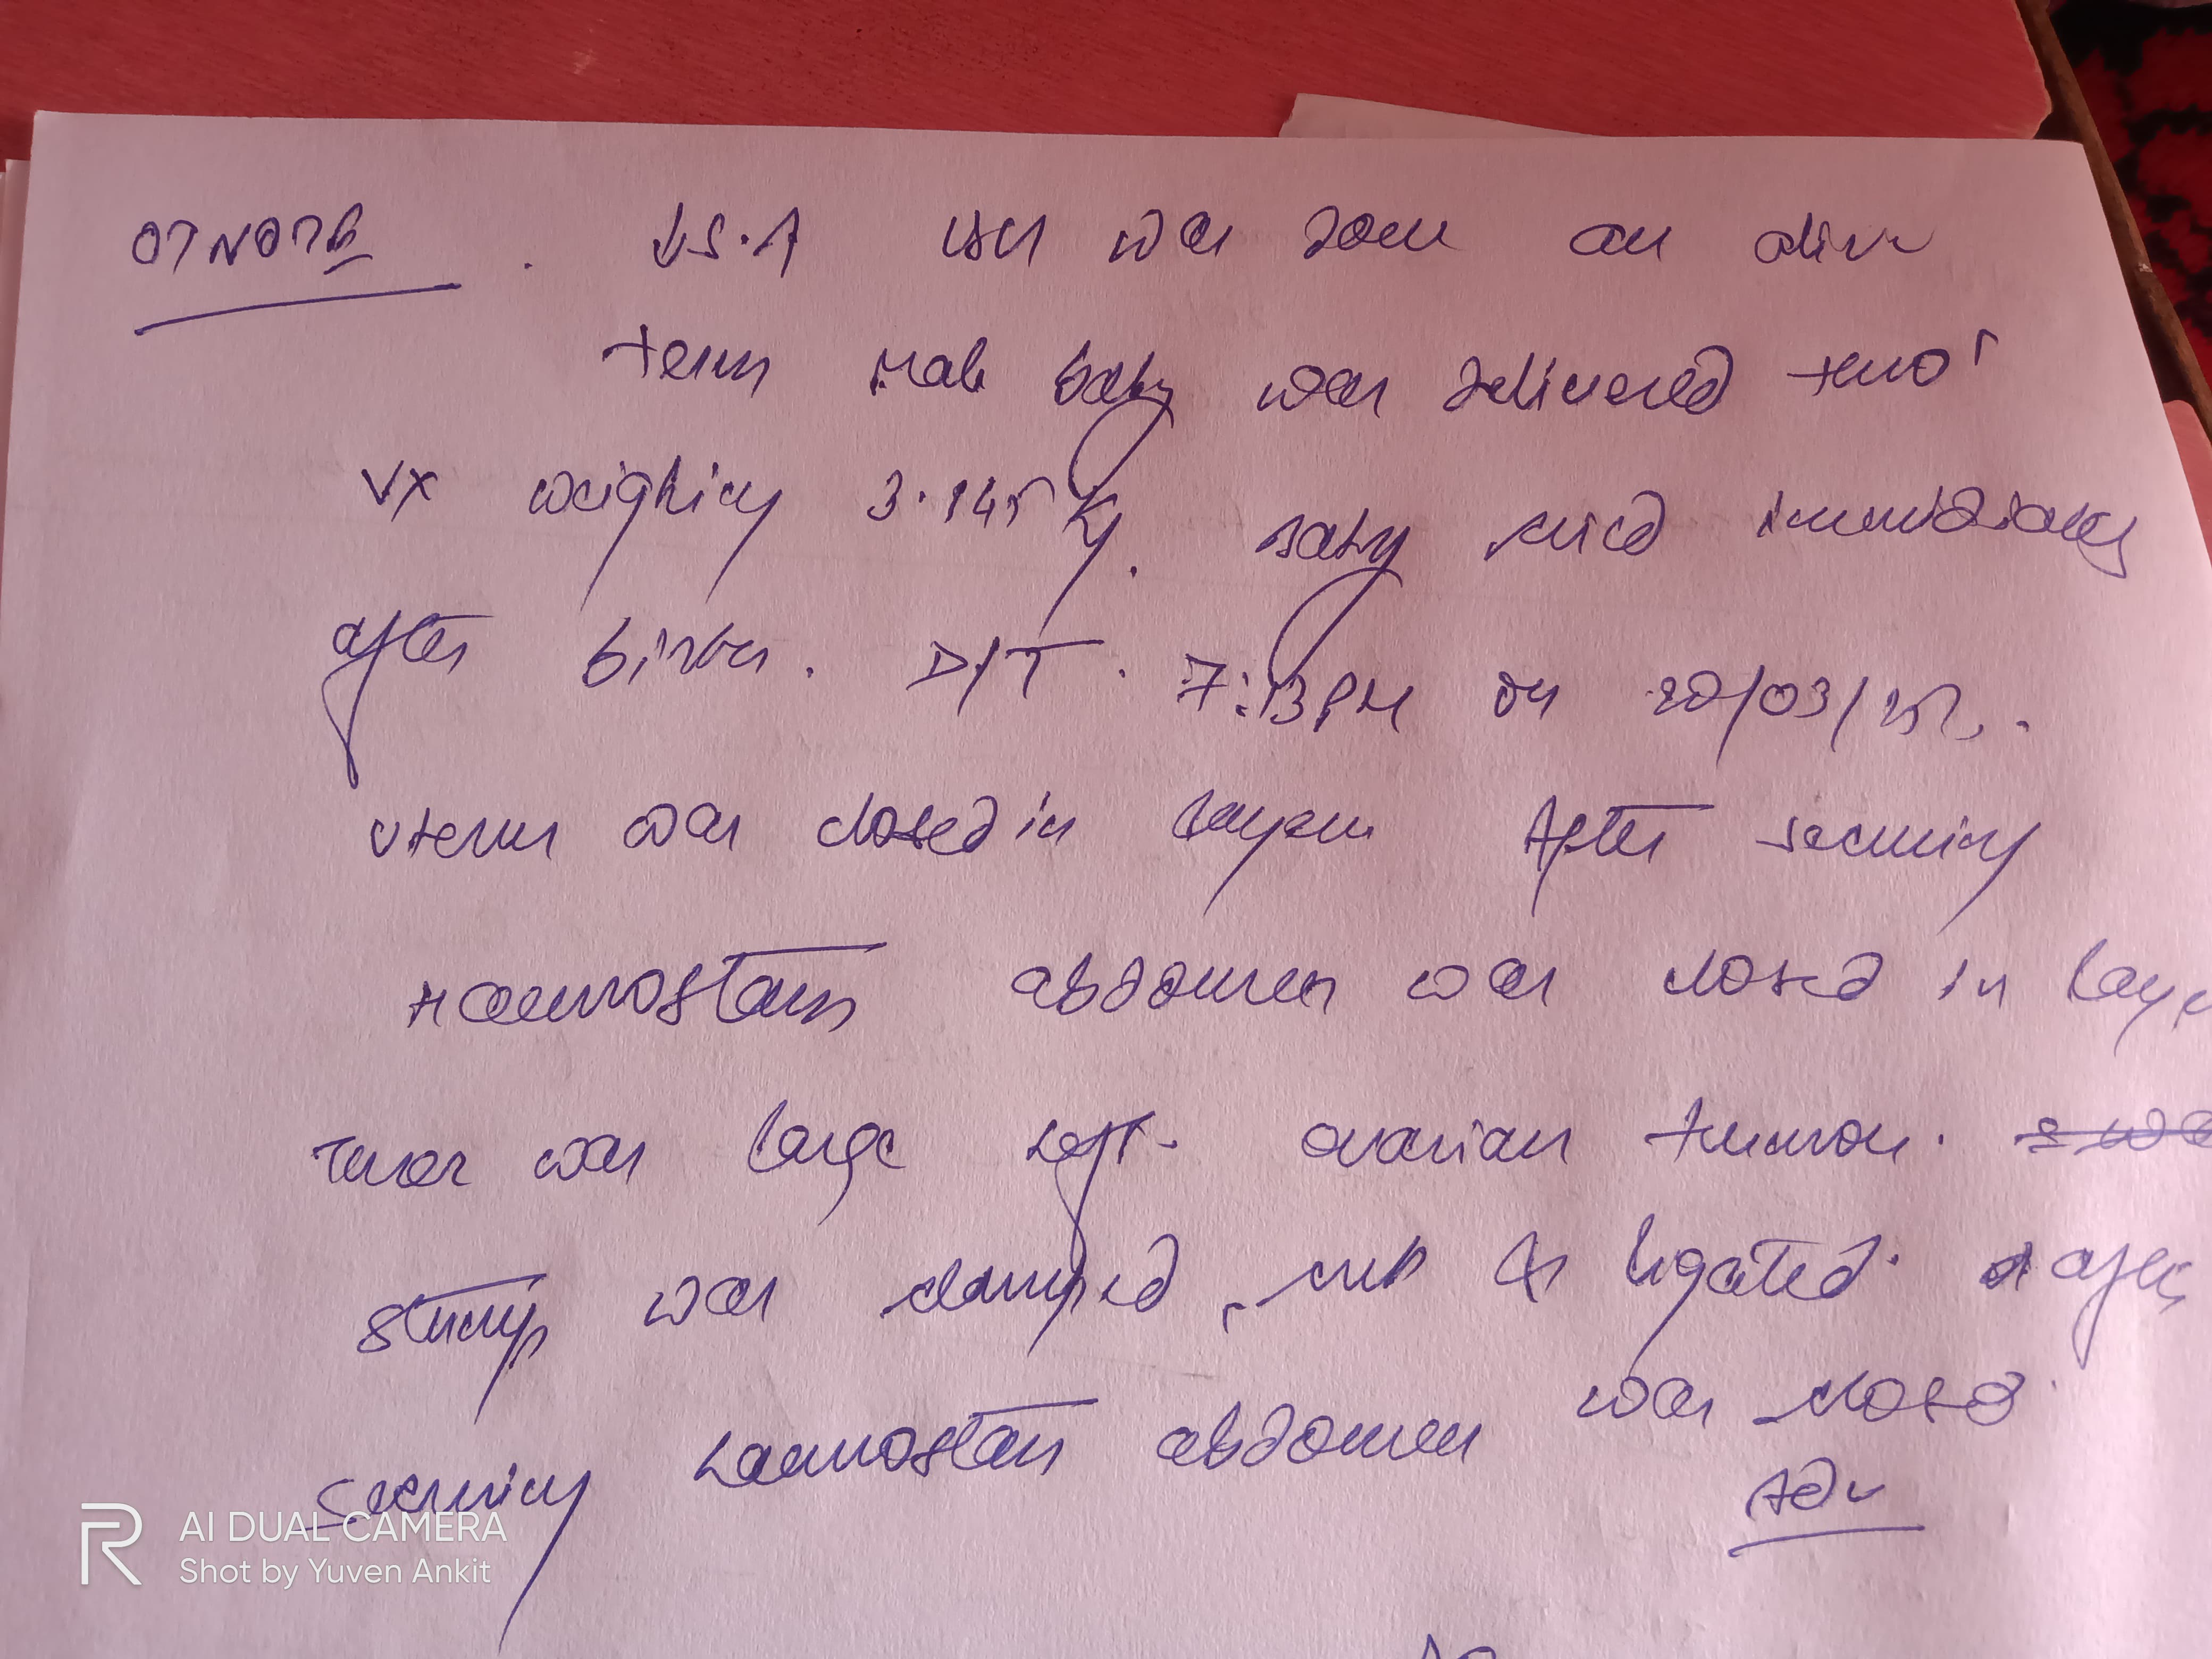 OT NOTE . U.S.A LSCS was done an alive
term male baby was delivered thro'
VX weighing 3.145 Kg. Baby cried immediately
after birth. D/T. 7:13 PM on 20/03/25.
Uterus was closed in layers After securing
Haemostasis abdomen was closed in laye
There was large left ovarian tumour.
Stump was clamped, cut & ligated. after
securing haemostasis abdomen was closed.
Adv
AI DUAL CAMERA
Shot by Yuven Ankit